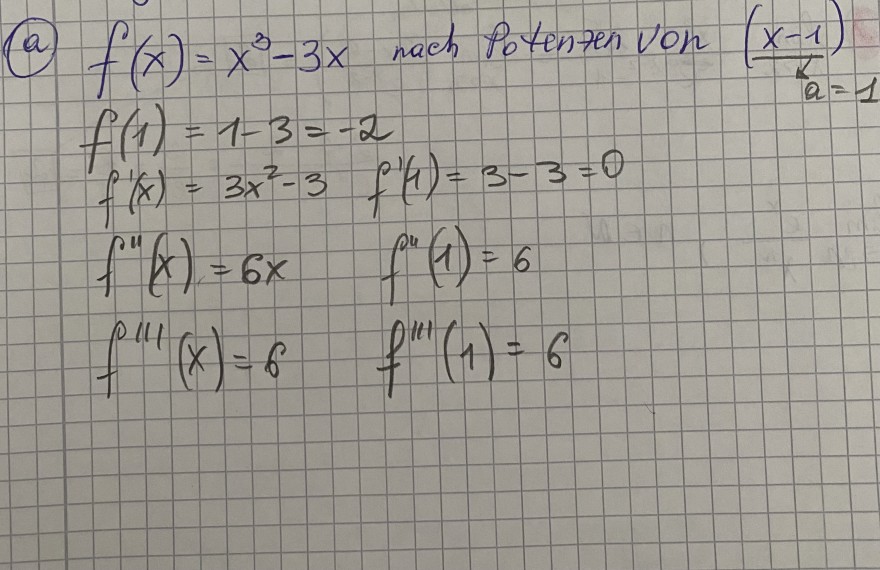 (a) f(x) = x³ - 3x nach Potenzen von (x-1)
a = 1
f(1) = 1 - 3 = -2
f'(x) = 3x² - 3 f'(1) = 3 - 3 = 0
f''(x) = 6x f''(1) = 6
f'''(x) = 6 f'''(1) = 6